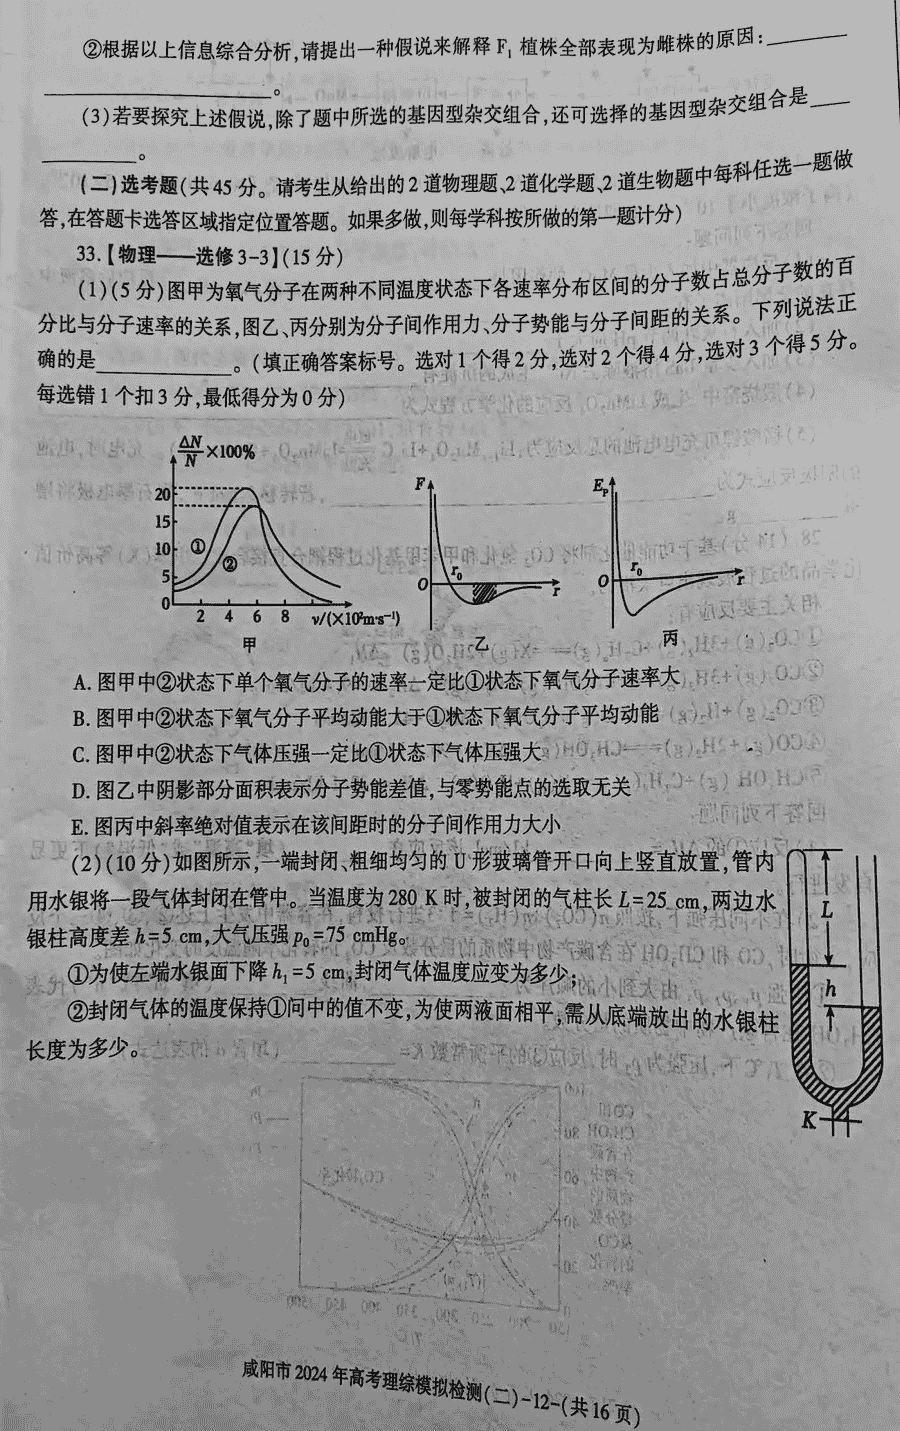 ②根据以上信息综合分析,请提出一种假说来解释 F₁ 植株全部表现为雌株的原因:________
________________。
(3)若要探究上述假说,除了题中所选的基因型杂交组合,还可选择的基因型杂交组合是____
________。
(二)选考题(共 45 分。请考生从给出的 2 道物理题、2 道化学题、2 道生物题中每科任选一题做
答,在答题卡选答区域指定位置答题。如果多做,则每学科按所做的第一题计分)
33.【物理——选修 3-3】(15 分)
(1)(5 分)图甲为氧气分子在两种不同温度状态下各速率分布区间的分子数占总分子数的百
分比与分子速率的关系,图乙、丙分别为分子间作用力、分子势能与分子间距的关系。下列说法正
确的是____________。(填正确答案标号。选对 1 个得 2 分,选对 2 个得 4 分,选对 3 个得 5 分。
每选错 1 个扣 3 分,最低得分为 0 分)
ΔN/N ×100%
20
15
10
5
0
①
②
2 4 6 8 v/(×10²m·s⁻¹)
甲
F
O
r₀
r
乙
Eₚ
O
r₀
r
丙
A. 图甲中②状态下单个氧气分子的速率一定比①状态下氧气分子速率大
B. 图甲中②状态下氧气分子平均动能大于①状态下氧气分子平均动能
C. 图甲中②状态下气体压强一定比①状态下气体压强大
D. 图乙中阴影部分面积表示分子势能差值,与零势能点的选取无关
E. 图丙中斜率绝对值表示在该间距时的分子间作用力大小
(2)(10 分)如图所示,一端封闭、粗细均匀的 U 形玻璃管开口向上竖直放置,管内
用水银将一段气体封闭在管中。当温度为 280 K 时,被封闭的气柱长 L=25 cm,两边水
银柱高度差 h=5 cm,大气压强 p₀=75 cmHg。
①为使左端水银面下降 h₁=5 cm,封闭气体温度应变为多少;
②封闭气体的温度保持①问中的值不变,为使两液面相平,需从底端放出的水银柱
长度为多少。
L
h
K
咸阳市 2024 年高考理综模拟检测(二)-12-(共 16 页)